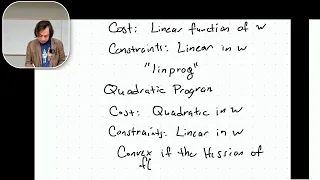 Cost: Linear function of w
Constraints: Linear in w
"linprog"
Quadratic Program
Cost: Quadratic in w
Constraints: Linear in w
Convex if the Hession of
f(